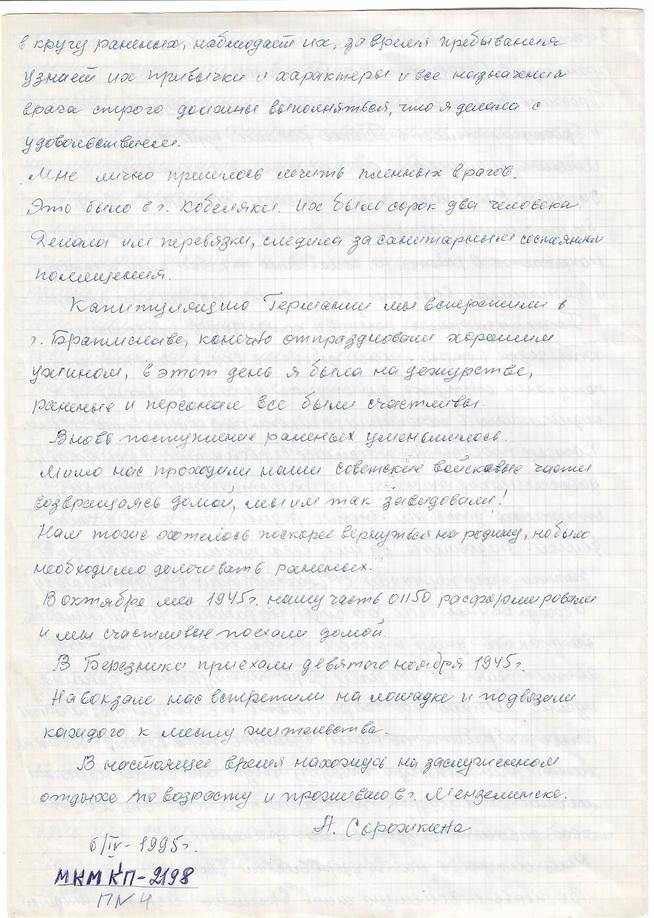 в кругу раненых, наблюдает их, за время пребывания
узнает их привычки и характеры и все назначения
врача строго должны выполняться, что я делала с
удовольствием.
Мне лично пришлось лечить пленных врагов.
Это было в г. Кобеляки. Их было сорок два человека.
Делала им перевязки, следила за санитарным состоянием
помещения.
Капитуляцию Германии мы встретили в
г. Братиславе, конечно отпраздновали хорошим
ужином, в этот день я была на дежурстве,
раненые и персонал все были счастливы.
Вновь поступление раненых уменьшилось.
Мимо нас проходили наши советские войсковые части
возвращаясь домой, мы им так завидовали!
Нам тоже хотелось поскорее вернуться на родину, но было
необходимо долечивать раненых.
В октябре м-це 1945г. нашу часть 01150 расформировали
и мы счастливые поехали домой.
В Березники приехали девятого ноября 1945г.
На вокзале нас встретили на лошадке и подвязали
каждого к месту жительства.
В настоящее время нахожусь на заслуженном
отдыхе по возрасту и проживаю в г. Мензелинске.
А. Сорокина
6/IV-1995г.
МКМ КП-2198
П№4